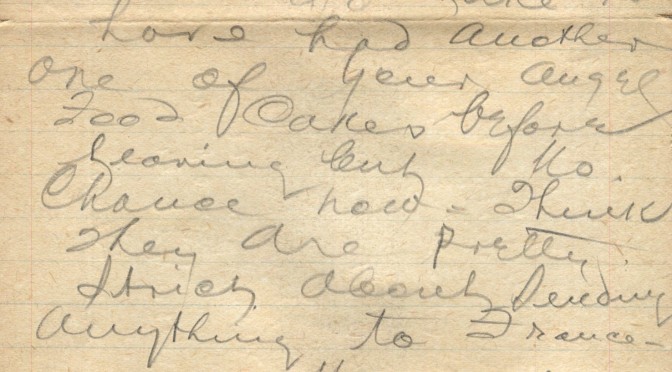 have had another
one of your angel
Food Cakes before
leaving but no
Chance now - Think
they are pretty
strict about sending
anything to France-